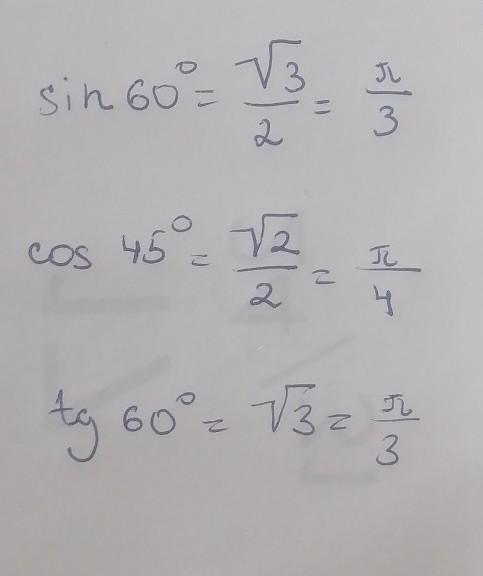 sin 60° = √3/2 = π/3
cos 45° = √2/2 = π/4
tg 60° = √3 = π/3